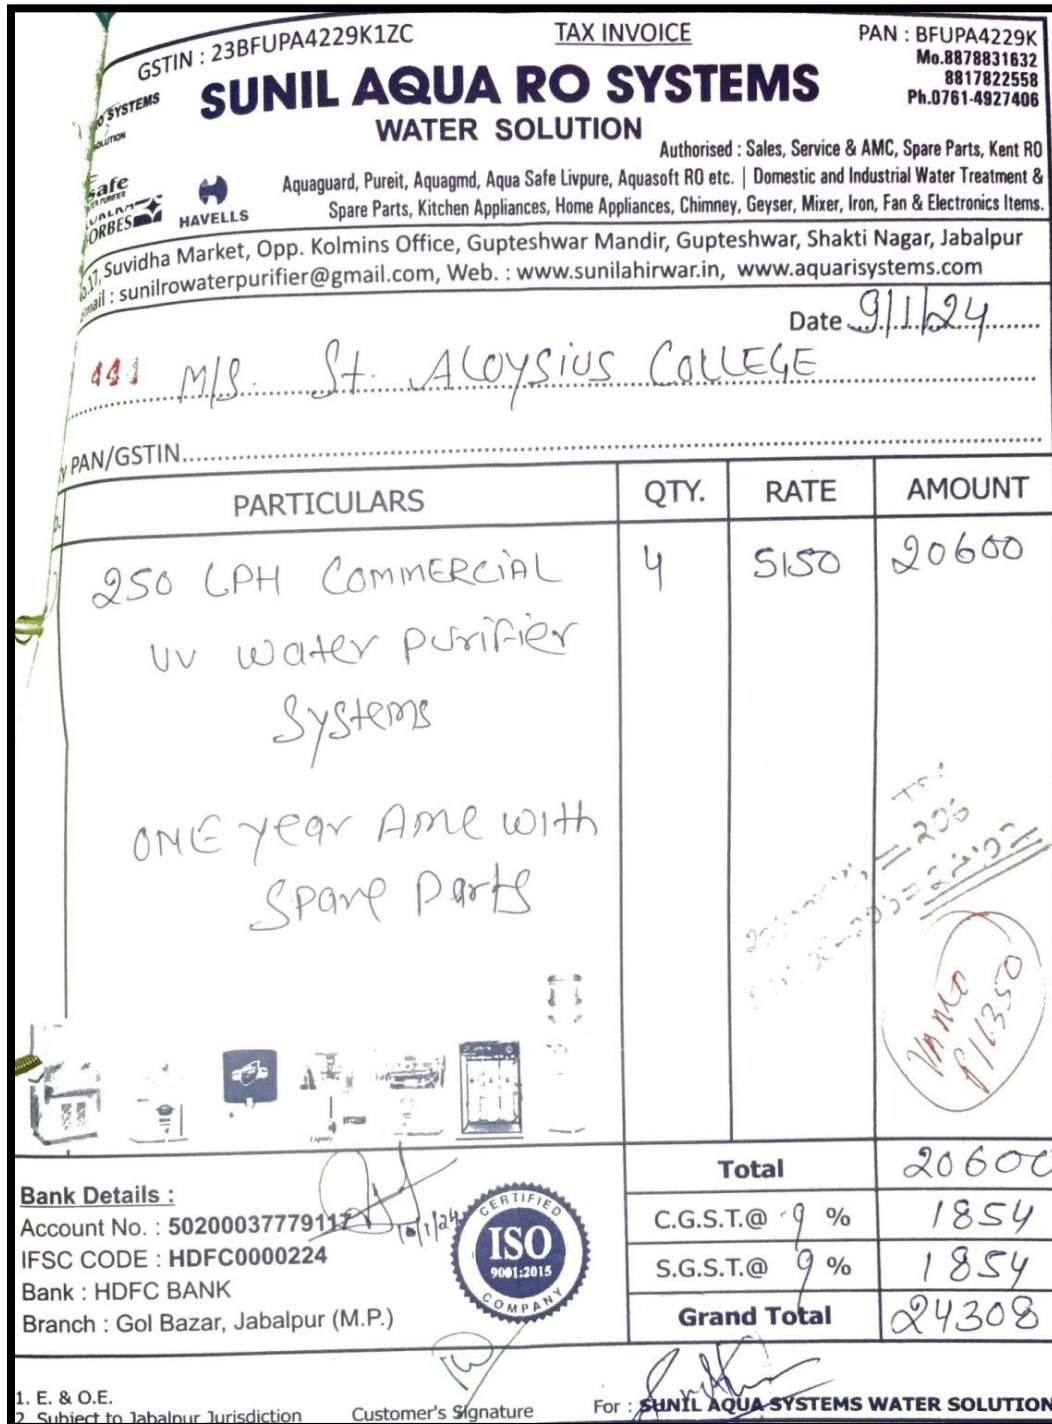 GSTIN : 23BFUPA4229K1ZC
TAX INVOICE
PAN : BFUPA4229K
Mo.8878831632
8817822558
Ph.0761-4927406
SUNIL AQUA RO SYSTEMS
WATER SOLUTION
SYSTEMS
Authorised : Sales, Service & AMC, Spare Parts, Kent RO
Aquaguard, Pureit, Aquagmd, Aqua Safe Livpure, Aquasoft RO etc. | Domestic and Industrial Water Treatment &
Spare Parts, Kitchen Appliances, Home Appliances, Chimney, Geyser, Mixer, Iron, Fan & Electronics Items.
HAVELLS
Suvidha Market, Opp. Kolmins Office, Gupteshwar Mandir, Gupteshwar, Shakti Nagar, Jabalpur
: sunilrowaterpurifier@gmail.com, Web. : www.sunilahirwar.in, www.aquarisystems.com
Date 9/1/24
M/S. St. ALOYSIUS COLLEGE
PAN/GSTIN
PARTICULARS QTY. RATE AMOUNT
250 LPH COMMERCIAL 4 5150 20600
UV water purifier
Systems
ONE year AMC with
Spare Parts
Total 20600
C.G.S.T.@ 9 % 1854
S.G.S.T.@ 9 % 1854
Grand Total 24308
Bank Details :
Account No. : 5020003777911
IFSC CODE : HDFC0000224
Bank : HDFC BANK
Branch : Gol Bazar, Jabalpur (M.P.)
10/1/24
CERTIFIED
ISO
9001:2015
COMPANY
1. E. & O.E.
2. Subject to Jabalpur Jurisdiction
Customer's Signature
For : SUNIL AQUA SYSTEMS WATER SOLUTION